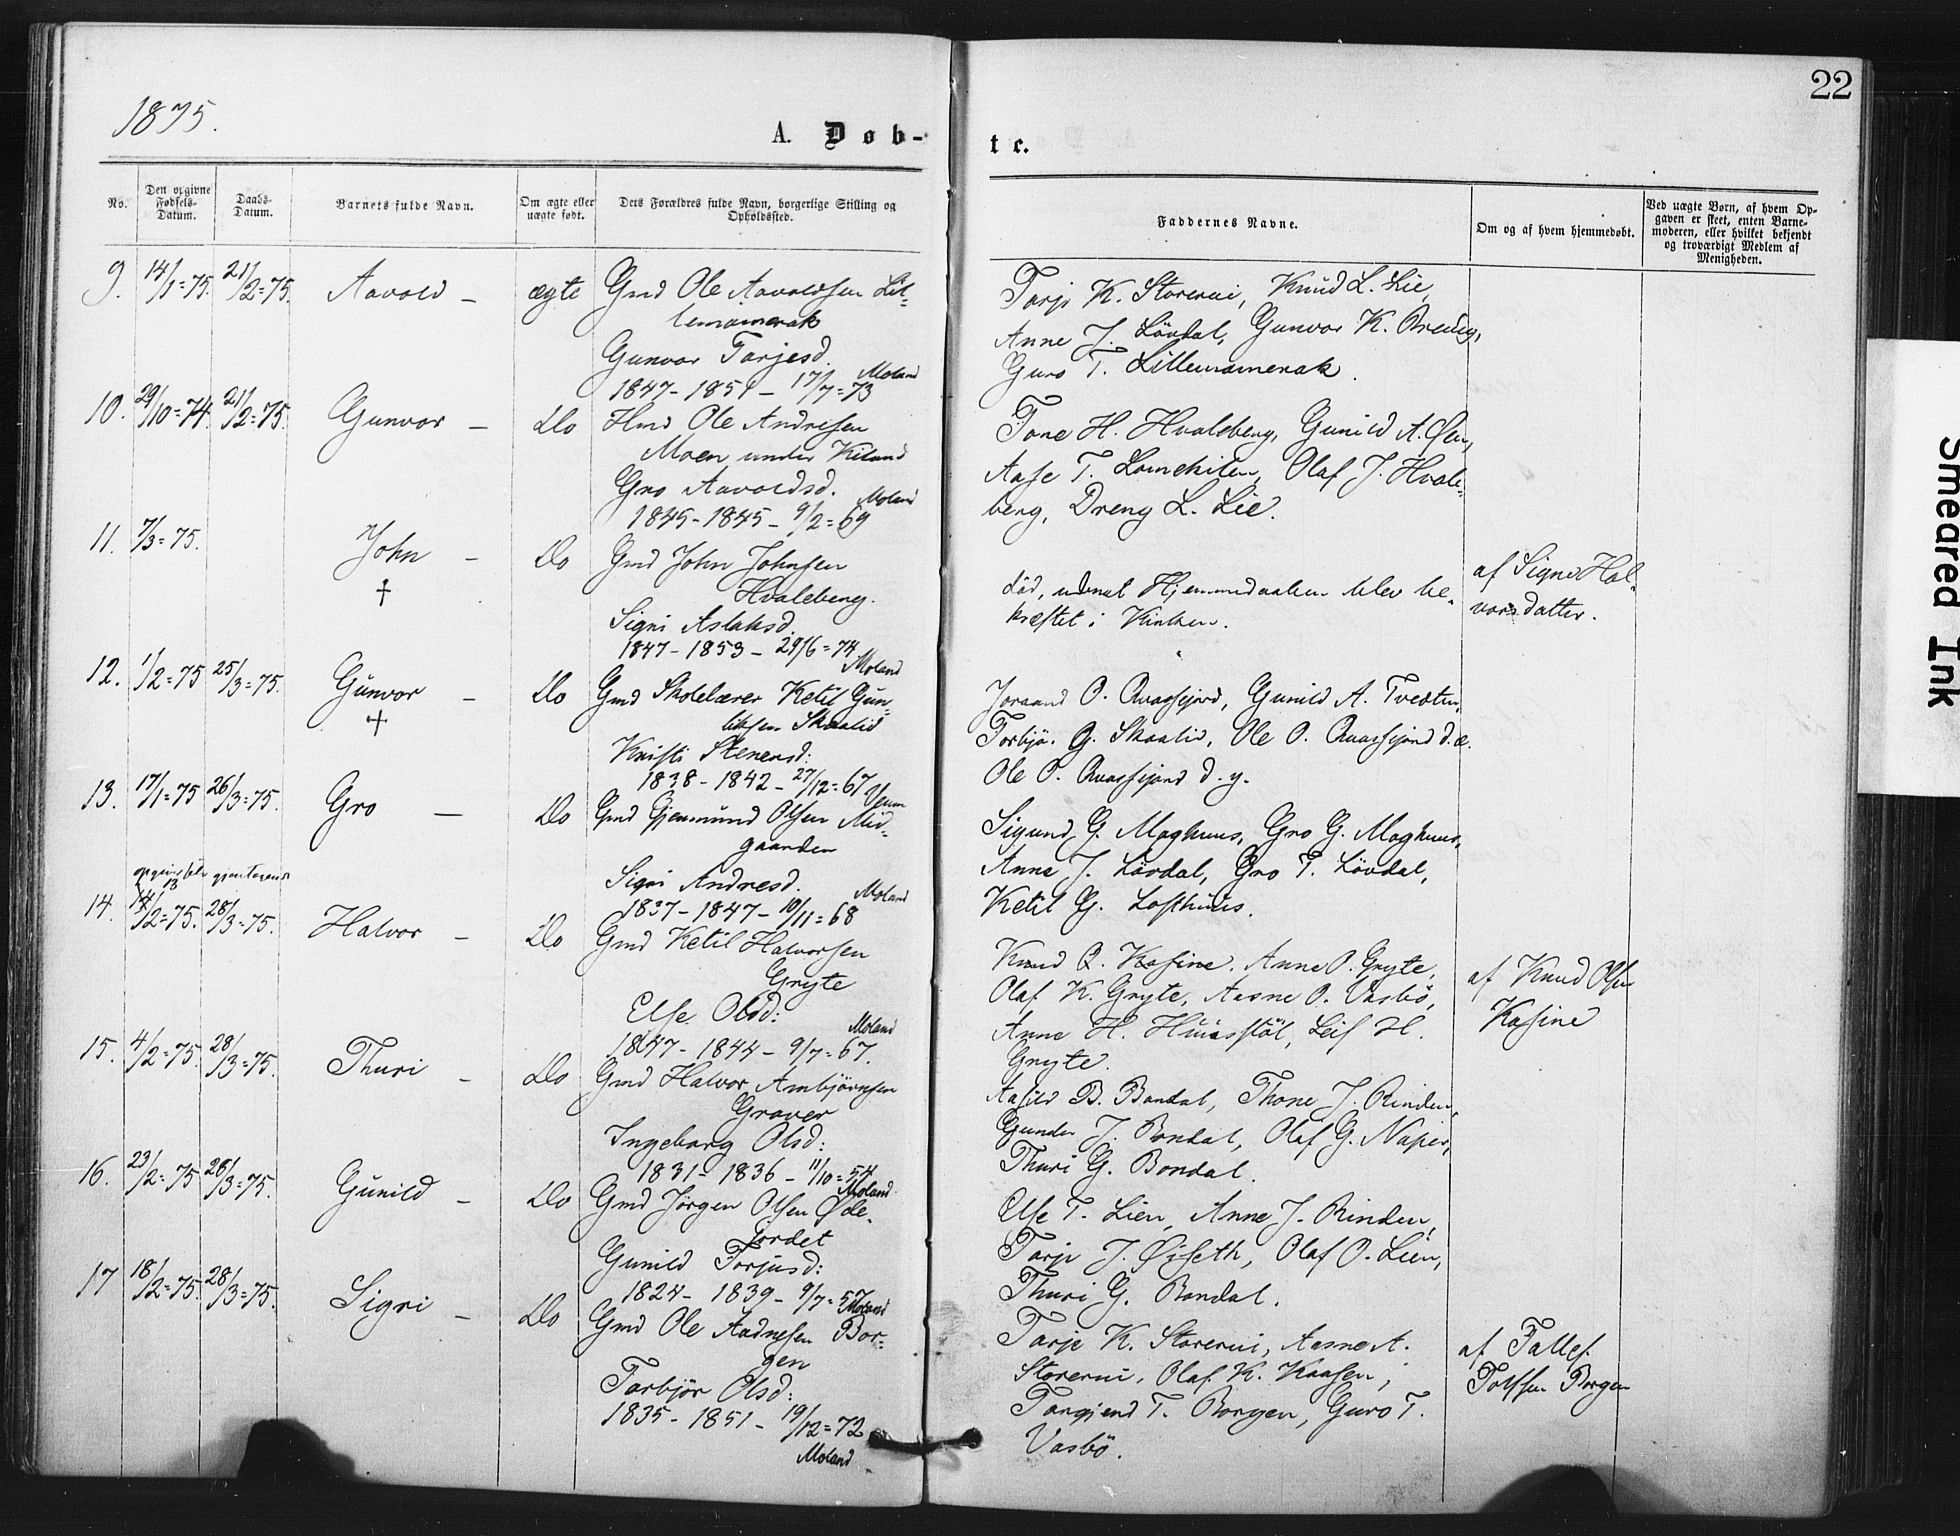 22
1875.
A. Døb-
t c.
No.
Den opgivne Fødsels-Datum.
Daabs-Datum.
Barnets fulde Navn.
Om ægte eller uægte født.
Dets Forældres fulde Navn, borgerlige Stilling og Opholdssted.
Faddernes Navne.
Om og af hvem hjemmedøbt.
Ved uægte Børn, af hvem Op-
gaven er skeet, enten Barne-
moderen, eller hvilket bekjendt
og troværdigt Medlem af
Menigheden.
9. 14/1=75. 21/2=75. Aavold – ægte Gmd Ole Aavoldsen Lil-
lemamerak
Gunvor Tarjesd.
Moland
1847-1851- 17/7=73
Tarje K. Storerui, Knud L. Lie,
Anne J. Lövdal, Gunvor K.
Guro T. Lillemamerak.
10. 29/10=74. 21/2=75. Gunvor – Do Hmd Ole Andresen
Moen under Kiland
Gro Aavoldsd.
Moland
1845-1845- 9/2=69
Tone H. Hvaleberg, Gunild A. Øen,
Aase T. Olaf J. Hvale-
berg, Dreng L. Lie.
11. 7/3=75. John – Do Gmd John Johnsen
†
Hvaleberg.
Signi Aslaksd.
1847-1853- 29/6=74
Moland
död, uden at Hjemmedaaben blev be-
kræftet i Kirken.
af Signe Hal-
vorsdatter.
12. 1/2=75 25/3=75. Gunvor – Do Gmd Skolelærer Ketil Gun-
†
Skaalid
Kristi Stenersd:
1838-1842- 27/12=67
Joraand O. Gunild A. Tvedten,
Torbjö. G. Skaalid, Ole O. d. æ.
Ole O. d. y.
13. 17/1=75 26/3=75. Gro – Do Gmd Gjermund Olsen Mid-
gaarden
Signi Andresd.
Moland
1837-1847- 10/11=68
Sigund G. Moghuus, Gro G. Moghuus,
Anne J. Lövdal, Gro T. Lövdal,
Ketil G. Lofthuus.
14. 14/2=75. 28/3=75. Halvor – Do Gmd Ketil Halvorsen
Gryte
Else Olsd:
Moland
1847-1844- 9/7=67.
Knud O. Kasine. Anne O. Gryte,
Olaf K. Gryte, Aasne O. Vasbö,
Anne H. Leif H.
Gryte.
af Knud Olsen
Kasine
15. 4/2=75. 28/3=75. Thuri – Do Gmd Halvor Ambjörnsen
Graver
Ingeborg Olsd:
1831-1836- 11/10=54
Moland
Aasild B. Bondal, Thone J. Rinden,
Gunder J. Bondal, Olaf G. Naper,
Thuri G. Bondal.
16. 23/2=75 28/3=75. Gunild – Do Gmd Jörgen Olsen Øde-
jordet
Gunild Torjusd:
1824- 1839- 9/7=57
Moland
Else T. Lien, Anne J. Rinden,
Tarje J. Øiseth, Olaf O. Lien,
Thuri G. Bondal.
17 18/2=75. 28/3=75. Sigri – Do Gmd Ole Aadnesen Bor-
gen
Torbjör Olsd:
1835-1851- 19/12=72
Moland
Tarje K. Storerui, Aasne A.
Storerui, Olaf K. Kaasen,
T. Borgen, Guro T.
Vasbö.
af Tallef
Borgen
Smeared Ink